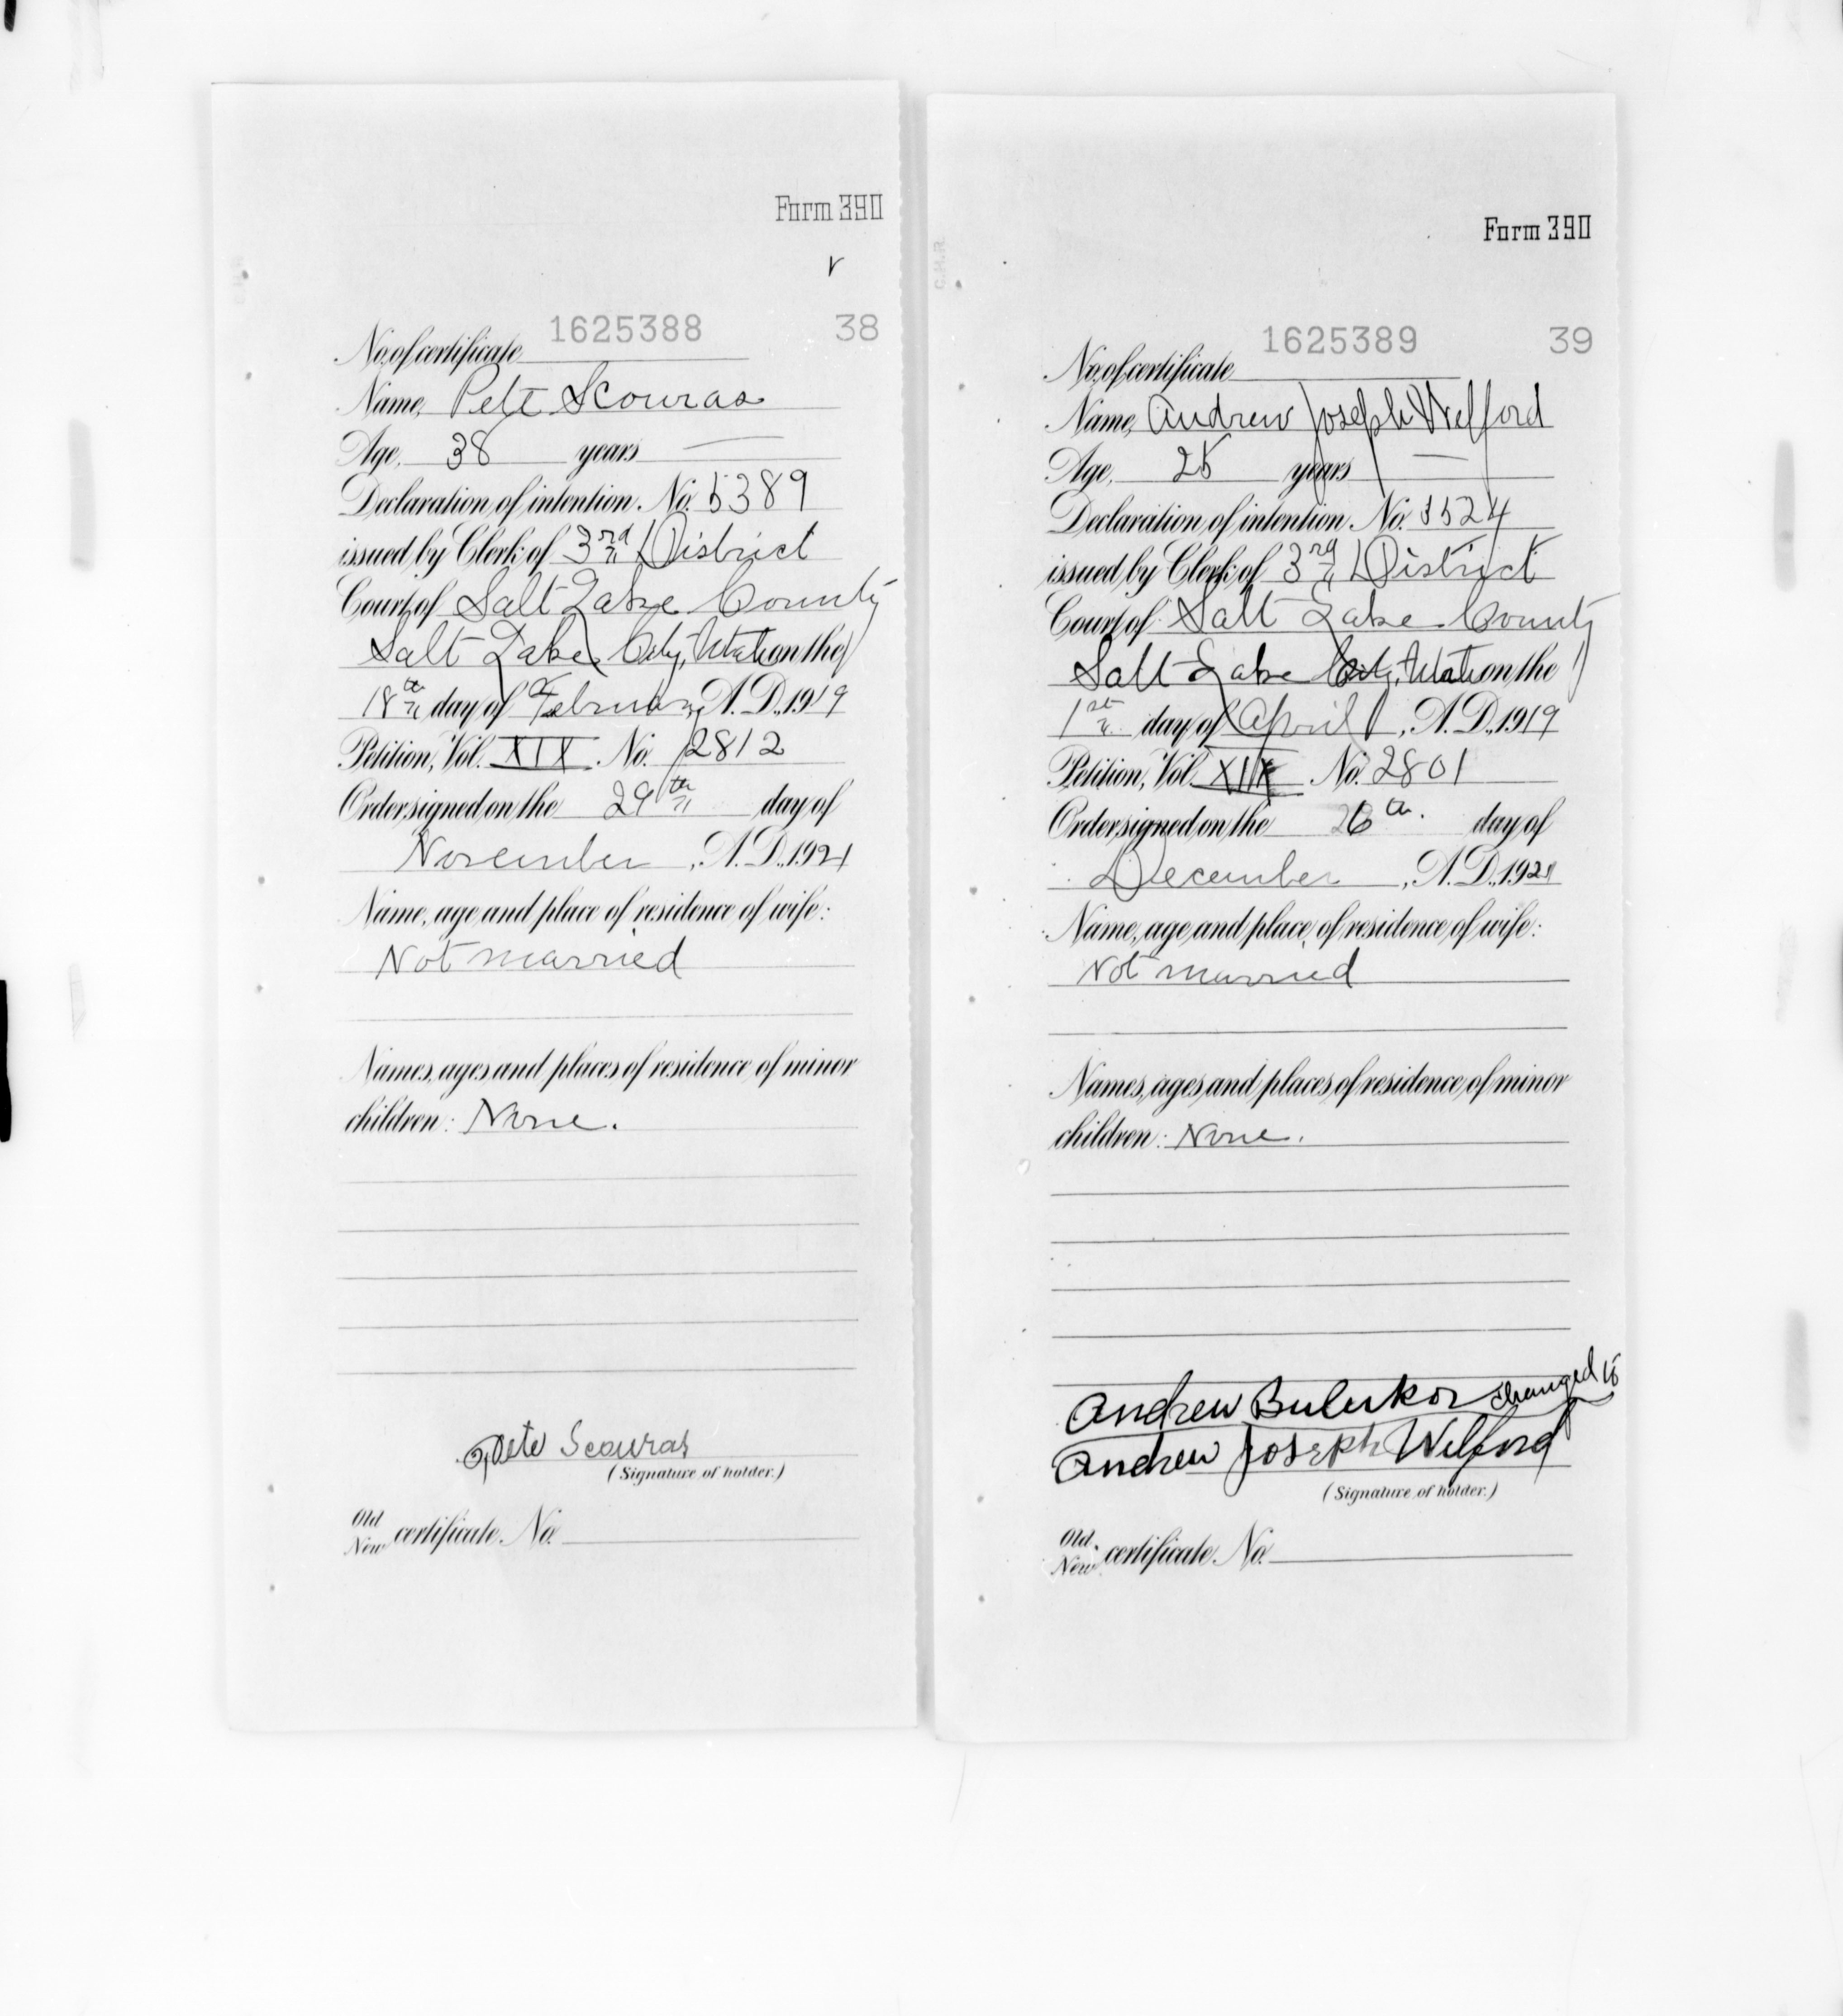 Form 390
1625388 38
No. of certificate
Name, Pete Scouras
Age, 38 years —
Declaration of intention. No. 5389
issued by Clerk of 3rd District
Court of Salt Lake County
Salt Lake City, Utah on the
18th day of February, A.D., 1919
Petition, Vol. XIX. No. 2812
Order signed on the 29th day of
November, A.D., 1921
Name, age and place of residence of wife:
Not married
Names, ages and places of residence of minor
children: None.
Pete Scouras
(Signature of holder.)
Old
New certificate No.
Form 390
1625389 39
No. of certificate
Name, Andrew Joseph Welford
Age, 25 years —
Declaration of intention No. 5524
issued by Clerk of 3rd District
Court of Salt Lake County
Salt Lake City, Utah on the
1st day of April, A.D., 1919
Petition, Vol. XIX No. 2801
Order signed on the 26th. day of
December, A.D., 1921
Name, age and place of residence of wife:
Not married
Names, ages and places of residence of minor
children: None.
Andrew changed to
Andrew Joseph Welford
(Signature of holder.)
Old
New certificate No.